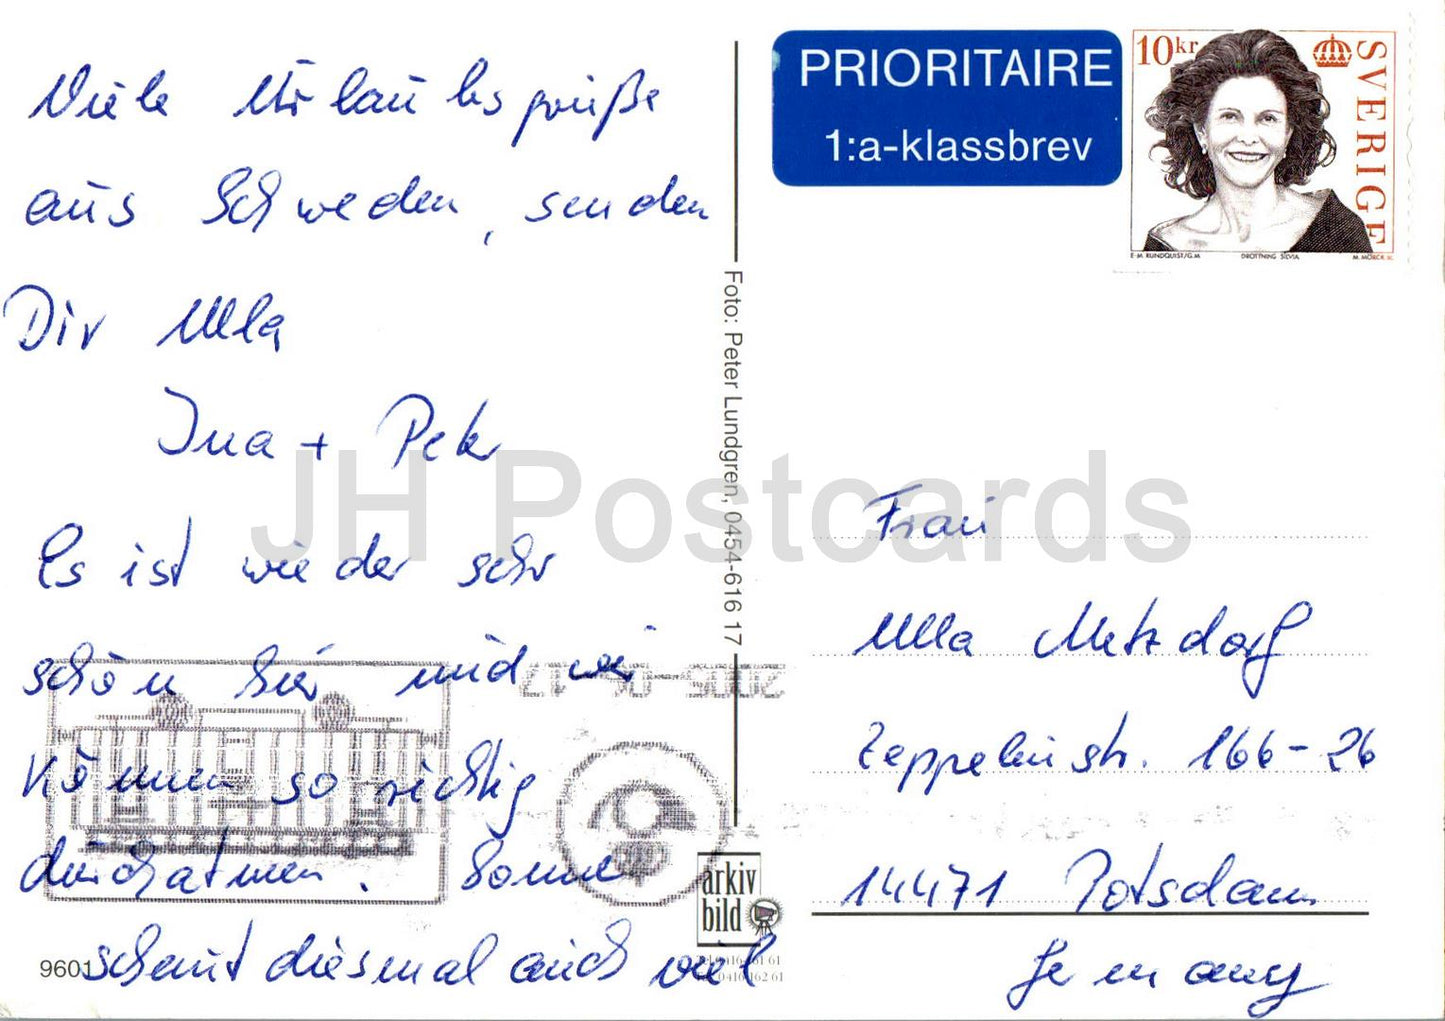 Viele Urlaubsgrüße
aus Schweden, senden
Dir Ulla
Ina + Peter
Es ist wieder sehr
schön hier und wir
können so richtig
durchatmen. Sonne
scheint diesmal auch viel
9601
Foto: Peter Lundgren, 0454-616 17
PRIORITAIRE
1:a-klassbrev
10kr
SVERIGE
E-M. RUNDQUIST/G.M. DROTTNING SILVIA M. MÖRCK SC.
JH Postcards
Frau
Ulla Metzdorf
Zeppelinstr. 166-26
14471 Potsdam
Germany
arkiv
bild